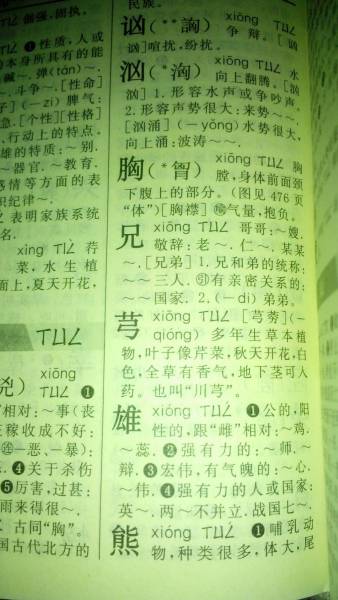 倔强,固执.
ㄒㄧㄥˋ ❶性质,人或
本身所具有的能
碱~. 弹(tán)~.
~. 斗争~. [性命]
子] (-zi) 脾气:
急. [个性][性格]
、行动上的特点。
雄的特质:~别.
~器官. ~教育.
感情等方面的表
织纪律~.
表明家族系统
名.
xìng ㄒㄧㄥˋ 荇
菜,水生植
面上,夏天开花,
ㄒㄩㄥ
xiōng
ㄒㄩㄥ ❶
相对:~事(丧
庄稼收成不好:
-恶、-暴):
❹关于杀伤
❺厉害,过甚:
雨来得很~.
古同“胸”。
国古代北方的
民族。
讻(**訩) xiōng ㄒㄩㄥ
争辩。[讻
讻]喧扰,纷扰。
汹(*洶) xiōng ㄒㄩㄥ 水
向上翻腾。[汹
汹] 1. 形容水声或争吵声.
2. 形容声势很大:来势~~.
[汹涌](-yǒng)水势很大,
向上涌:波涛~~.
胸(*胷) xiōng ㄒㄩㄥ 胸
膛,身体前面颈
下腹上的部分。(图见 476 页
“体”)[胸襟] 气量,抱负。
兄 xiōng ㄒㄩㄥ 哥哥:~嫂.
敬辞:老~. 仁~. 某某
~. [兄弟] 1. 兄和弟的统称:
~~三人. 有亲密关系的:
~~国家. 2. (-di) 弟弟。
芎 xiōng ㄒㄩㄥ [芎䓖](-
qióng) 多年生草本植
物,叶子像芹菜,秋天开花,白
色,全草有香气,地下茎可入
药。也叫“川芎”。
雄 xióng ㄒㄩㄥˊ ❶公的,阳
性的,跟“雌”相对:~鸡.
~蕊. ❷强有力的:~师. ~
辩. ❸宏伟,有气魄的:~心.
~伟. ❹强有力的人或国家:
英~. 两~不并立. 战国七~.
熊 xióng ㄒㄩㄥˊ ❶哺乳动
物,种类很多,体大,尾